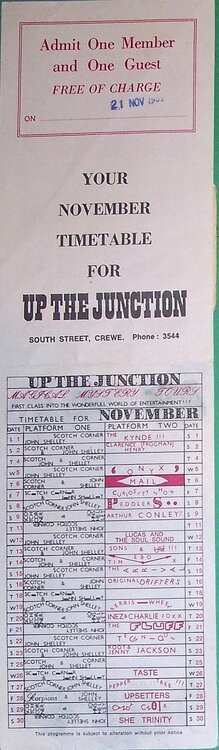 Admit One Member
and One Guest
FREE OF CHARGE
21 NOV
ON
YOUR
NOVEMBER
TIMETABLE
FOR
UP THE JUNCTION
SOUTH STREET, CREWE. Phone : 3544
UP THE JUNCTION
MAGICAL MYSTERY TOURS
FIRST CLASS INTO THE WONDERFULL WORLD OF ENTERTAINMENT!!!
TIMETABLE FOR NOVEMBER
DATE PLATFORM ONE PLATFORM TWO DATE
S 1 SCOTCH CORNER JOHN SHELLEY THE KYNDE !!! S 1
S 2 SCOTCH CORNER JOHN SHELLEY CLARENCE (FROGMAN) HENRY S 2
T 4 SCOTCH CORNER JOHN SHELLEY T 4
W 5 SCOTCH CORNER JOHN SHELLEY 'ONYX' W 5
T 6 SCOTCH & JOHN CORNER SHELLEY MAIL T 6
F 7 SCOTCH CORNER JOHN SHELLEY CURIOSITY F 7
S 8 SCOTCH CORNER JOHN SHELLEY PEDDLERS S 8
S 9 SCOTCH CORNER JOHN SHELLEY ARTHUR CONLEY!! S 9
T 11 SCOTCH CORNER JOHN SHELLEY T 11
W 12 SCOTCH CORNER JOHN SHELLEY LUCAS AND THE SOUL SOUND W 12
T 13 SCOTCH & JOHN CORNER SHELLEY SONS & !!! T 13
F 14 SCOTCH CORNER JOHN SHELLEY TIM F 14
S 15 SCOTCH CORNER JOHN SHELLEY THE S 15
S 16 SCOTCH CORNER JOHN SHELLEY ORIGINAL DRIFTERS S 16
W 19 SCOTCH CORNER JOHN SHELLEY FERRIS WHEEL W 19
T 20 SCOTCH CORNER JOHN SHELLEY INEZ & CHARLIE FOXX T 20
F 21 SCOTCH CORNER JOHN SHELLEY F 21
S 22 SCOTCH CORNER JOHN SHELLEY S 22
S 23 SCOTCH CORNER JOHN SHELLEY ROOT & JENNY JACKSON S 23
T 25 SCOTCH CORNER JOHN SHELLEY T 25
W 26 SCOTCH CORNER JOHN SHELLEY TASTE W 26
T 27 SCOTCH CORNER JOHN SHELLEY PEPPER TREE !!! T 27
F 28 Scorpions & JOHN SHELLEY UPSETTERS F 28
S 29 SCOTCH CORNER JOHN SHELLEY S 29
S 30 SCOTCH CORNER JOHN SHELLEY SHE TRINITY S 30
This programme is subject to alteration without prior notice